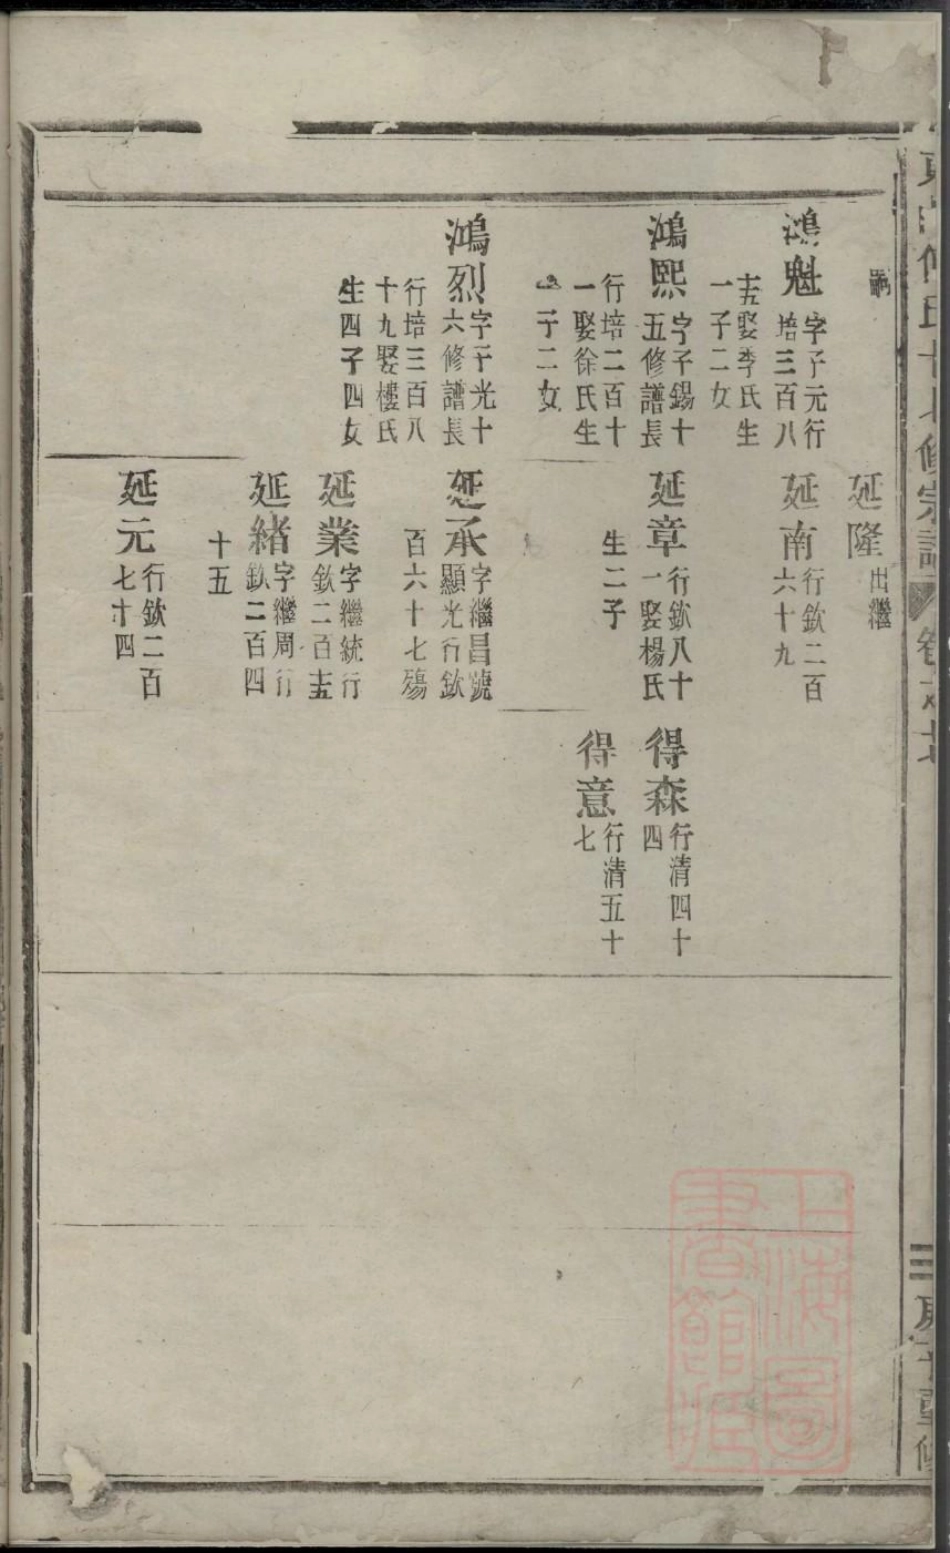 鴻魁
字子元行
培三百八
十五娶李氏生
一子二女
鴻熙
字子錫十
五修譜長
行培二百十
一娶徐氏生
二子二女
鴻烈
字子光十
六修譜長
行培三百八
十九娶樓氏
生四子四女
延隆
出繼
延南
行欽二百
六十九
延章
行欽八十
一娶楊氏
生二子
延承
字繼昌號
顯光行欽
百六十七殤
延業
字繼統行
欽二百十五
延緒
字繼周行
欽二百四
十五
延元
行欽二百
七十四
得森
行清四十
四
得意
行清五十
七
上海圖
書館藏